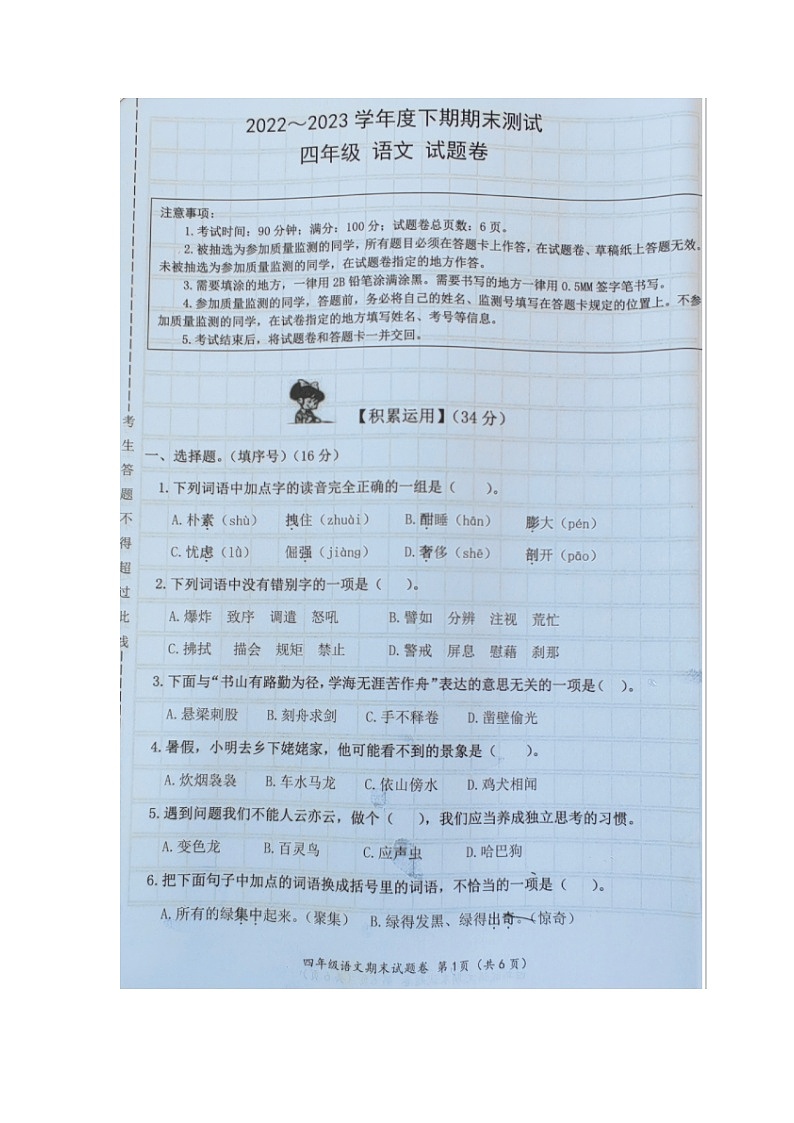 2022～2023 学年度下期期末测试
四年级 语文 试题卷
注意事项：
1.考试时间：90分钟；满分：100分；试题卷总页数：6页。
2.被抽选为参加质量监测的同学，所有题目必须在答题卡上作答，在试题卷、草稿纸上答题无效。
未被抽选为参加质量监测的同学，在试题卷指定的地方作答。
3.需要填涂的地方，一律用2B铅笔涂满涂黑。需要书写的地方一律用0.5MM签字笔书写。
4.参加质量监测的同学，答题前，务必将自己的姓名、监测号填写在答题卡规定的位置上。不参
加质量监测的同学，在试卷指定的地方填写姓名、考号等信息。
5.考试结束后，将试题卷和答题卡一并交回。
考生答题不得超过此线
【积累运用】（34分）
一、选择题。（填序号）（16分）
1.下列词语中加点字的读音完全正确的一组是（ ）。
A.朴素（shù） 拽住（zhuài） B.酣睡（hān） 膨大（pén）
C.忧虑（lǜ） 倔强（jiàng） D.奢侈（shē） 剖开（pāo）
2.下列词语中没有错别字的一项是（ ）。
A.爆炸 致序 调遣 怒吼 B.譬如 分辨 注视 荒忙
C.拂拭 描会 规矩 禁止 D.警戒 屏息 慰藉 刹那
3.下面与“书山有路勤为径，学海无涯苦作舟”表达的意思无关的一项是（ ）。
A.悬梁刺股 B.刻舟求剑 C.手不释卷 D.凿壁偷光
4.暑假，小明去乡下姥姥家，他可能看不到的景象是（ ）。
A.炊烟袅袅 B.车水马龙 C.依山傍水 D.鸡犬相闻
5.遇到问题我们不能人云亦云，做个（ ），我们应当养成独立思考的习惯。
A.变色龙 B.百灵鸟 C.应声虫 D.哈巴狗
6.把下面句子中加点的词语换成括号里的词语，不恰当的一项是（ ）。
A.所有的绿集中起来。（聚集） B.绿得发黑、绿得出奇。（惊奇）
四年级语文期末试题卷 第1页（共6页）